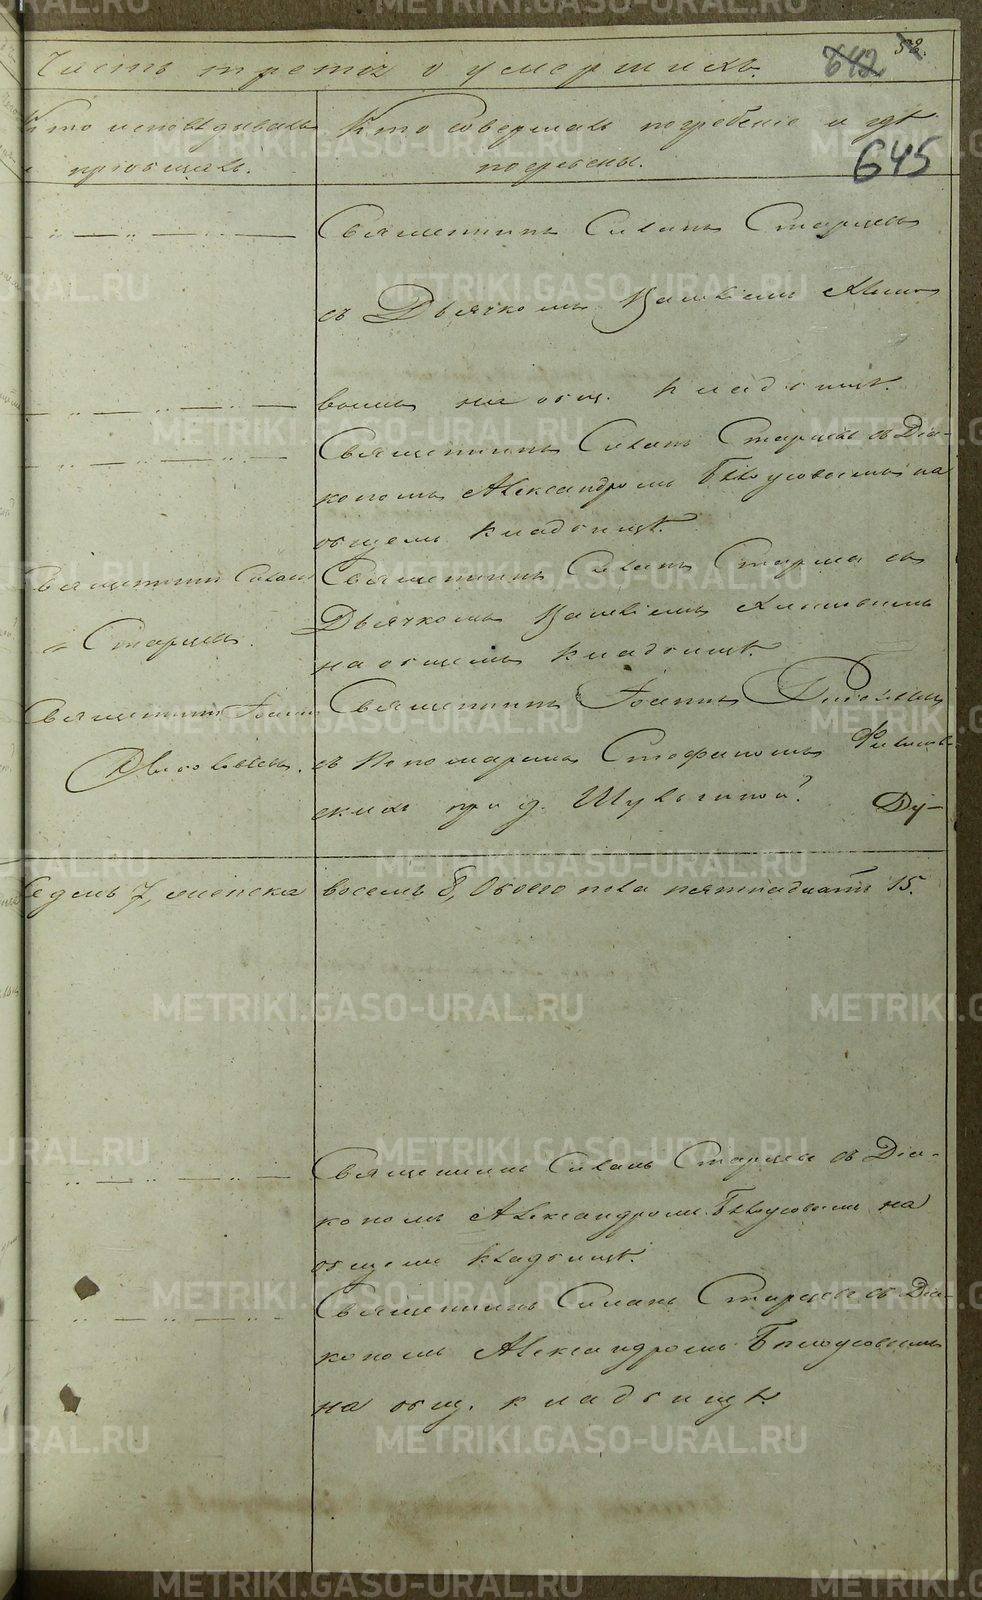 Часть третія о умершихъ.
642
58.
645
Кто исповѣдывалъ
и пріобщалъ.
Кто совершалъ погребеніе и гдѣ
погребены.
Священникъ Силанъ Старцевъ
съ Дьячкомъ
на общ. кладбищѣ.
Священникъ Силанъ Старцевъ съ Діа-
кономъ Александромъ Бѣлоусовымъ на
общемъ кладбищѣ.
Священникъ Силанъ
Старцевъ.
Священникъ Силанъ Старцевъ съ
Дьячкомъ
на общемъ кладбищѣ.
Священникъ Іоаннъ
Священникъ Іоаннъ
съ Пономаремъ Стефаномъ
при д. Шулыгиной?
Ду-
Седмь 7, женска
восемь 8, Обоего пола пятнадцать 15.
Священникъ Силанъ Старцевъ съ Діа-
кономъ Александромъ Бѣлоусовымъ на
общемъ кладбищѣ.
Священникъ Силанъ Старцевъ съ Діа-
кономъ Александромъ Бѣлоусовымъ
на общ. кладбищѣ.
METRIKI.GASO-URAL.RU